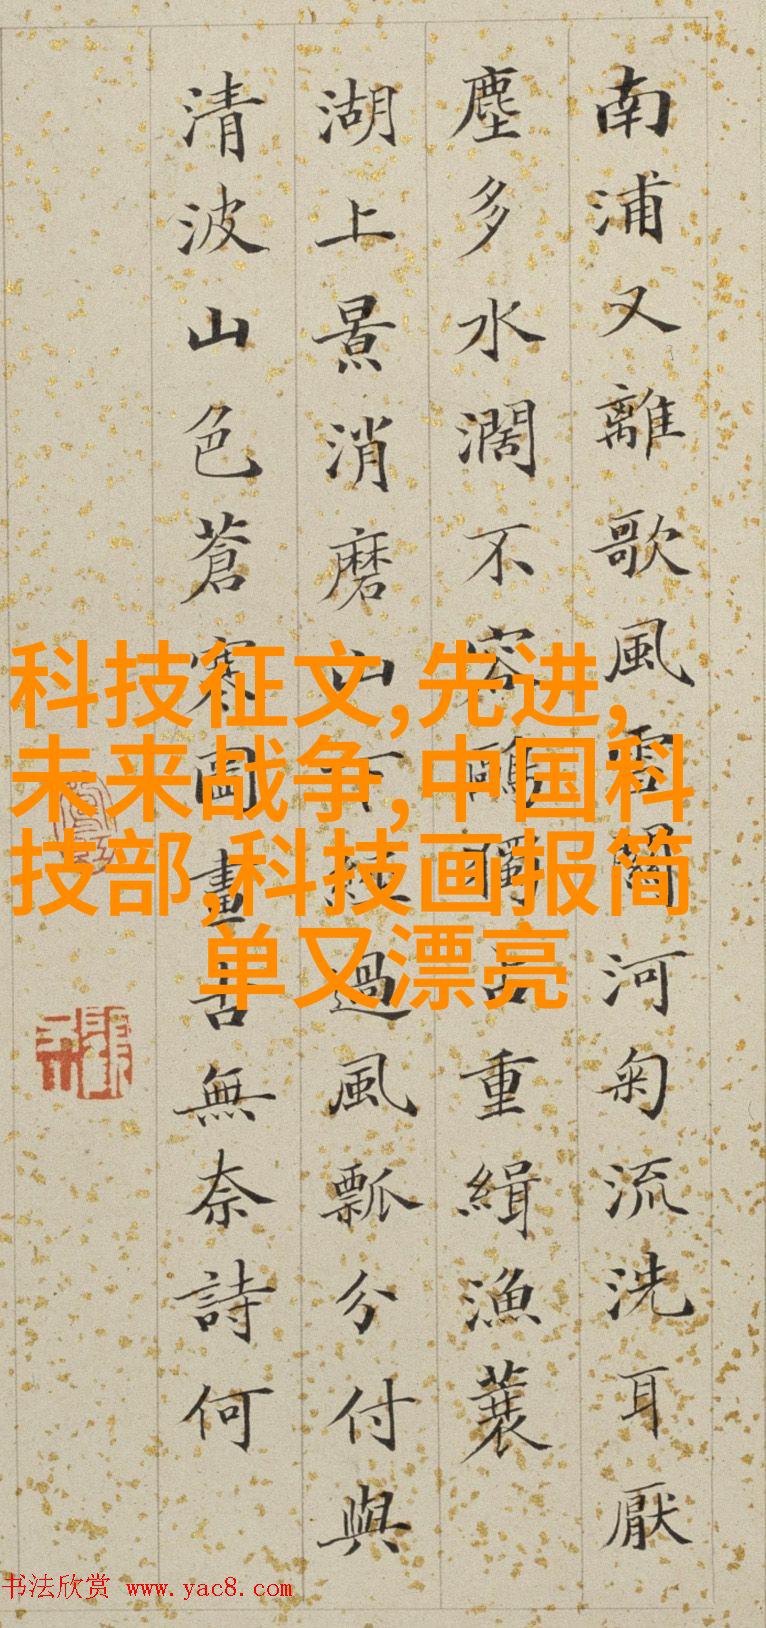 南浦又離歌風雲闊河匊流洗耳厭
塵多水濶不容鷗獨占重緝漁蓑
湖上景消磨山下經過風瓢分付與
清波山色蒼寒圖畫古無奈詩何
科技征文,先进,
未来战争,中国科
技部,科技画报简
单又漂亮
书法欣赏 www.yac8.com